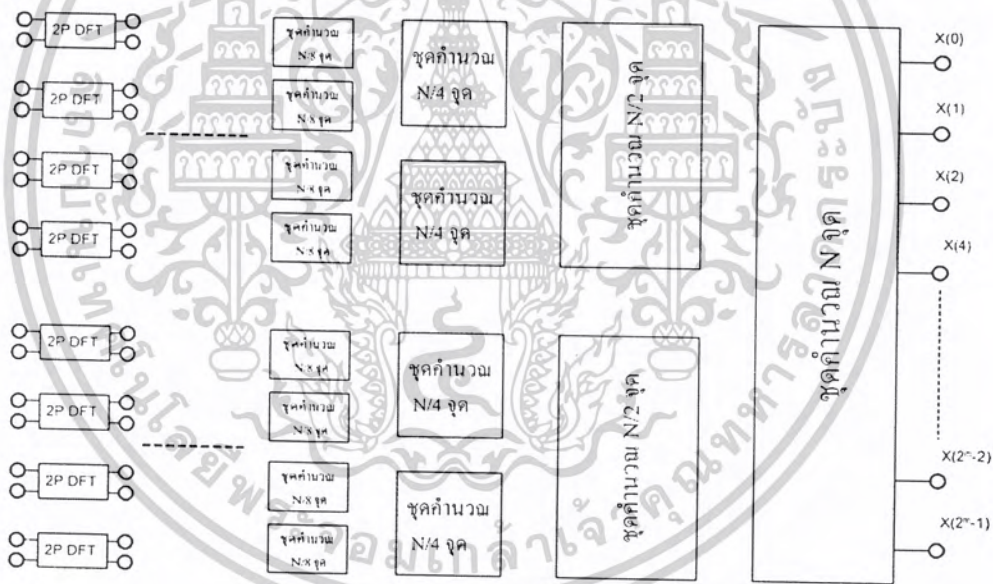 2P DFT
2P DFT
2P DFT
2P DFT
2P DFT
2P DFT
2P DFT
2P DFT
ชุดคำนวณ
N/8 จุด
ชุดคำนวณ
N/8 จุด
ชุดคำนวณ
N/8 จุด
ชุดคำนวณ
N/8 จุด
ชุดคำนวณ
N/8 จุด
ชุดคำนวณ
N/8 จุด
ชุดคำนวณ
N/8 จุด
ชุดคำนวณ
N/8 จุด
ชุดคำนวณ
N/4 จุด
ชุดคำนวณ
N/4 จุด
ชุดคำนวณ
N/4 จุด
ชุดคำนวณ
N/4 จุด
ชุดคำนวณ N/2 จุด
ชุดคำนวณ N/2 จุด
ชุดคำนวณ N จุด
X(0)
X(1)
X(2)
X(4)
X(2ⁿ-2)
X(2ⁿ-1)
สถาบันเทคโนโลยีพระจอมเกล้าเจ้าคุณทหารลาดกระบัง